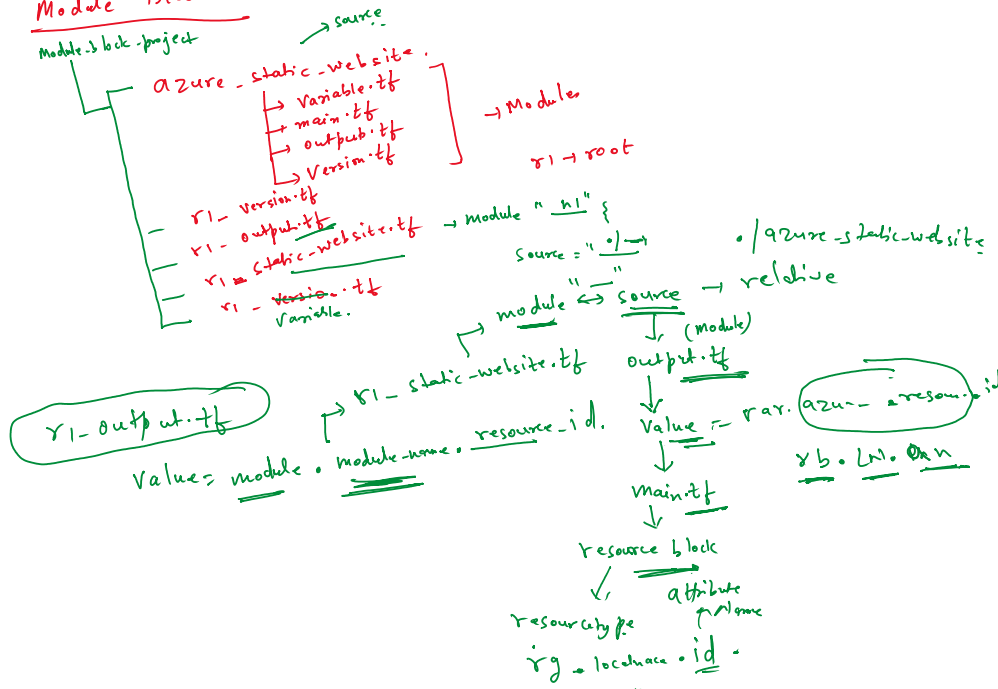 Module
Module_block_project
source
azure_static_website.
variable.tf
main.tf
output.tf
Version.tf
→ Modules
r1 → root
r1_ version.tf
r1 - output.tf
r1 - static-website.tf → module "n1" {
source = "./
./azure_static-website
r1 - version.tf
Variable.
module " " ↔ source → relative
(module)
output.tf
r1_ static-website.tf
r1_output.tf
value = module . module_name . resource_id.
value = var. azu . resou . id
rb . LN .
main.tf
resource block
attribute
Name
resourcetype
rg - localname . id .